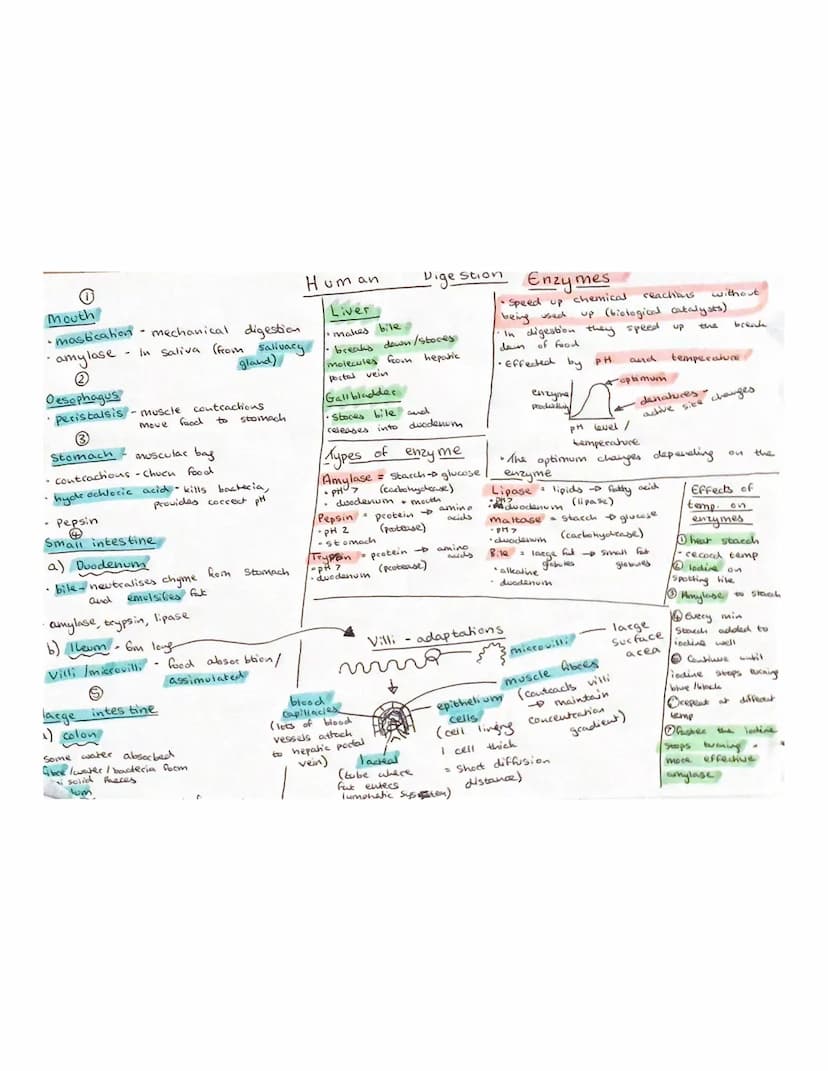 Human Digestion
①
Mouth
• mastication - mechanical digestion
• amylase - In saliva (from salivary
gland)
②
Oesophagus
• peristalsis - muscle contractions
move food to stomach
③
Stomach - muscular bag
• contractions - churn food
• hydrochloric acid - kills bacteria,
provides correct pH
• Pepsin
④
Small intestine
a) Duodenum
• bile - neutralises chyme from stomach
and emulsifies fat
• amylase, trypsin, lipase
b) Ileum - 6m long
Villi/microvilli - food absorbtion/
assimilated
⑤
large intestine
) colon
some water absorbed
fibre/water/bacteria form
solid faeces
Liver
• makes bile
• breaks down/stores
molecules from hepatic
portal vein
Gallbladder
• Stores bile and
releases into duodenum
Types of enzyme
Amylase = Starch → glucose
• pH 7 (carbohydrase)
• duodenum + mouth
Pepsin = protein → amino
acids
• pH 2 (protease)
• stomach
Trypsin = protein → amino
acids
• pH 7 (protease)
• duodenum
Enzymes
• Speed up chemical reactions without
being used up (biological catalysts)
• In digestion they speed up the break
down of food
• Effected by pH and temperature
enzyme
optimum
denatures -
active site changes
pH level /
temperature
• The optimum changes depending on the
enzyme
Lipase = lipids → fatty acid
• pH 7
duodenum (lipase)
Maltase = starch → glucose
• pH 7 (carbohydrase)
• duodenum
Bile = large fat → small fat
globules globules
• alkaline
• duodenum
Effects of
temp. on
enzymes
① heat starch
- record temp
② Iodine on
spotting tile
③ Amylase to starch
④ Every min
starch added to
iodine well
continue until
iodine stops turning
blue/black
repeat at different
temp
⑦ faster the iodine
stops turning -
more effective
amylase
Villi - adaptations
microvilli — large
surface
area
muscle fibres
(contracts villi
→ maintain
concentration
gradient)
epithelium
cells
(cell lining
1 cell thick
= short diffusion
distance)
blood
capillaries
(lots of blood
vessels attach
to hepatic portal
vein)
lacteal
(tube where
fat enters
lymphatic system)